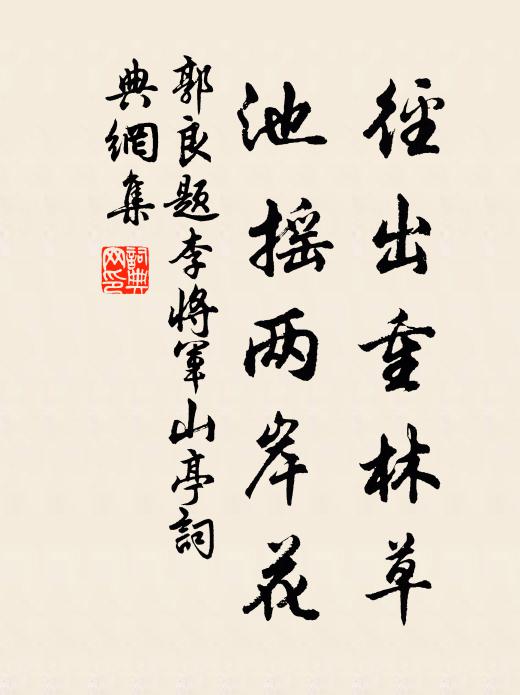 徑出重林草
池摇两岸花
郭良题李將軍山亭詞
典網集
詞典
网印